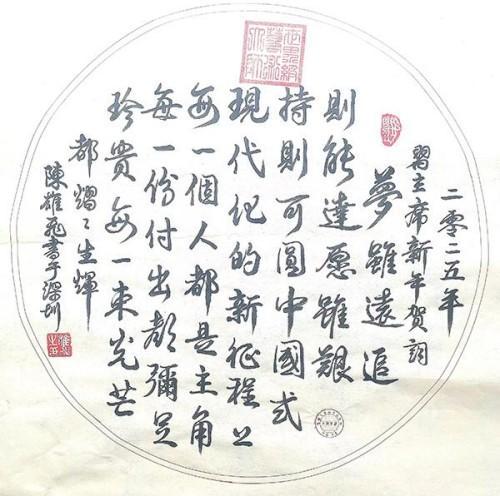 二零二五年
習主席新年贺詞
夢雖遠追
則能達愿雖艱
持則可圆中國式
現代化的新征程上
每一個人都是主角
每一份付出都彌足
珍贵每一束光芒
都熠〻生輝
陳雄飛書于深圳